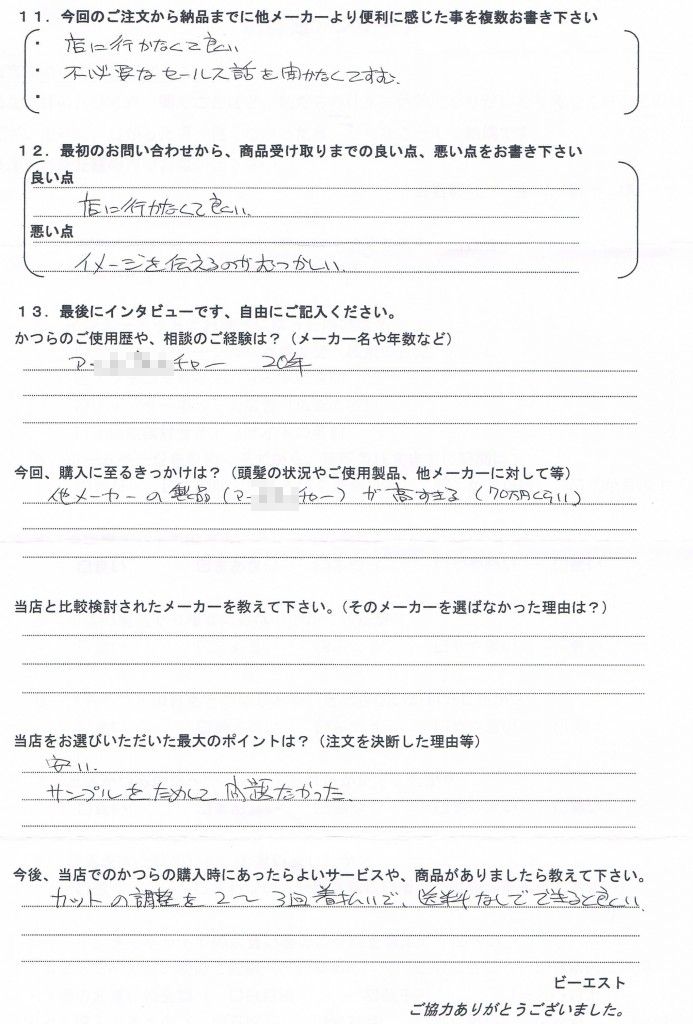 １１．今回のご注文から納品までに他メーカーより便利に感じた事を複数お書き下さい
・ 店に行かなくて良い
・ 不必要なセールス話を聞かなくてすむ。
・
１２．最初のお問い合わせから、商品受け取りまでの良い点、悪い点をお書き下さい
良い点
店に行かなくて良い。
悪い点
イメージを伝えるのがむつかしい。
１３．最後にインタビューです、自由にご記入ください。
かつらのご使用歴や、相談のご経験は？（メーカー名や年数など）
アー チャー 20年
今回、購入に至るきっかけは？（頭髪の状況やご使用製品、他メーカーに対して等）
他メーカーの製品（アー チャー）が高すぎる（70万円くらい）
当店と比較検討されたメーカーを教えて下さい。（そのメーカーを選ばなかった理由は？）
当店をお選びいただいた最大のポイントは？（注文を決断した理由等）
安い。
サンプルをためして問題なかった。
今後、当店でのかつらの購入時にあったらよいサービスや、商品がありましたら教えて下さい。
カットの調整を2～3回着払いで、送料なしでできると良い。
ビーエスト
ご協力ありがとうございました。